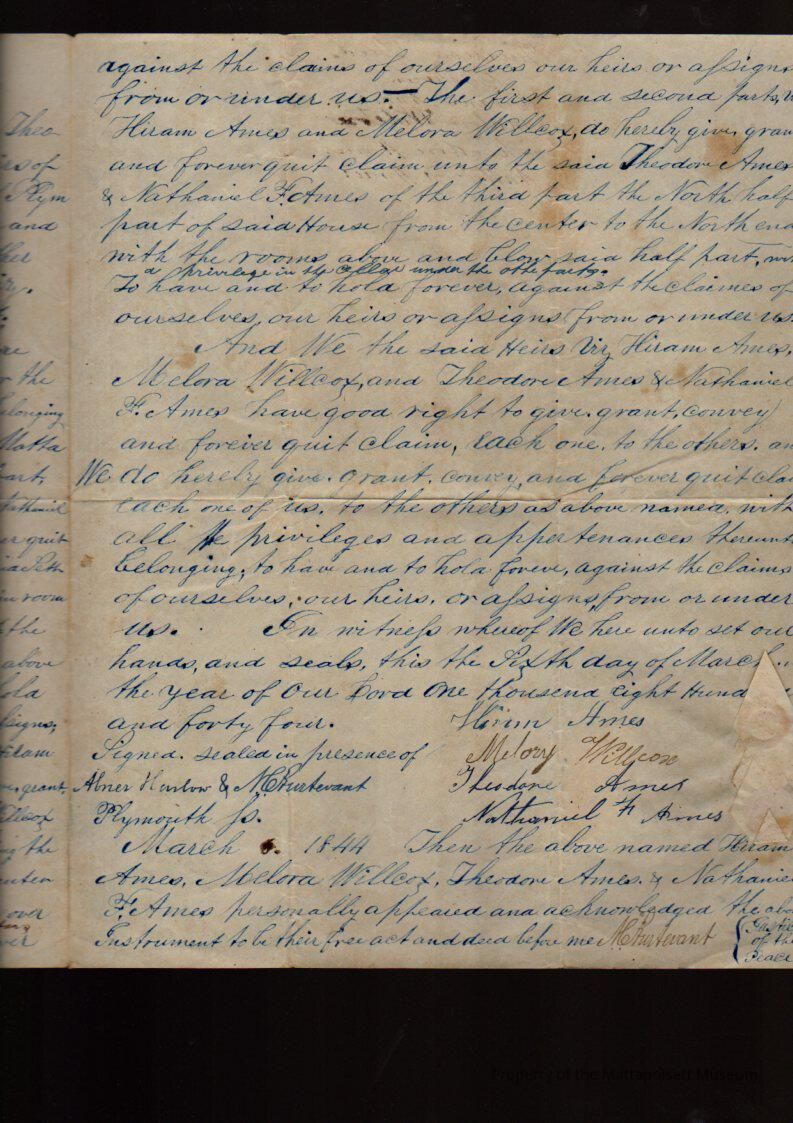 against the claims of ourselves our heirs or assigns
from or under us. — The first and second parts,
Hiram Ames and Melora Willcox, do hereby give, gran
and forever quit claim unto the said Theodore Ames
& Nathaniel F. Ames of the third part the North half
part of said House from the center to the North end
with the rooms above and blow said half part,
a privilege in the celler under the othe parts.
To have and to hold forever, against the claimes of
ourselves, our heirs or assigns from or under us.
And We the said Heirs Viz, Hiram Ames,
Melora Willcox, and Theodore Ames & Nathaniel
F. Ames have good right to give. grant, convey
and forever quit claim, Each one, to the others. an
We do hereby give. grant. convey, and forever quit clai
each one of us. to the others as above named, with
all the privileges and appertenances thereunt
Belonging; to have and to hold foreve, against the claims
of ourselves, our heirs. or assigns, from or under
us. In witness whereof We here unto set our
hands, and seals, this the Sixth day of March
the year of Our Lord One thousand Eight Hund
and forty four. Hiram Ames
Signed. sealed in presence of Melory Willcox
Abner Harlow & N. Sturtevant Theodore Ames
Plymouth Ss. Nathaniel F Ames
March 6. 1844 Then the above named Hiram
Ames, Melora Willcox, Theodore Ames. & Nathanie
F. Ames personally appeared and acknowledged the abo
Instrument to be their free act and deed before me N. Sturtevant
of the
Peace
Theo
irs of
Plym
and
her
the
elonging
Matta
art
athaniel
er quit
room
the
above
old
signs,
Hiram
grant.
Willcox
the
enter
over
Property of the Mattapoisett Museum